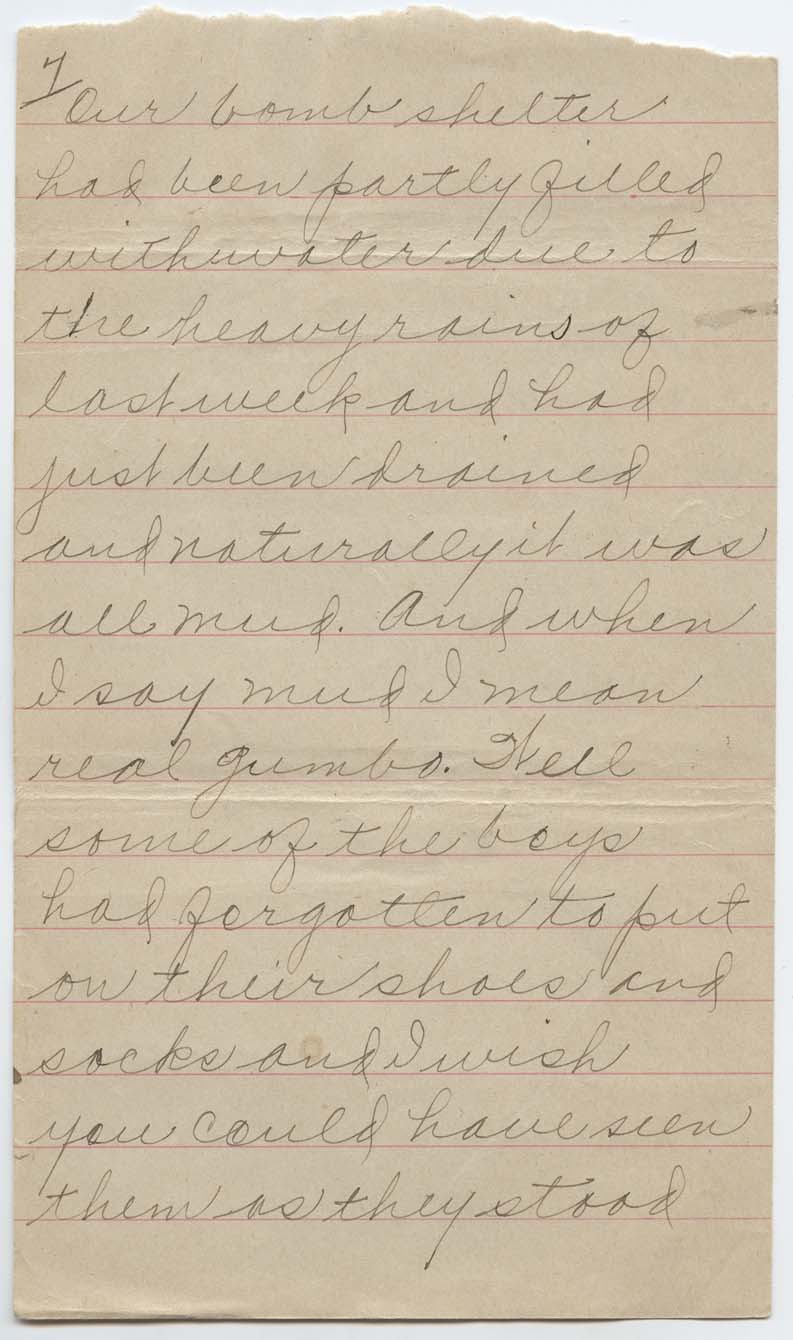 7
Our bomb shelter
had been partly filled
with water due to
the heavy rains of
last week and had
just been drained
and naturally it was
all mud. And when
I say mud I mean
real gumbo. Well
some of the boys
had forgotten to put
on their shoes and
socks and I wish
you could have seen
them as they stood